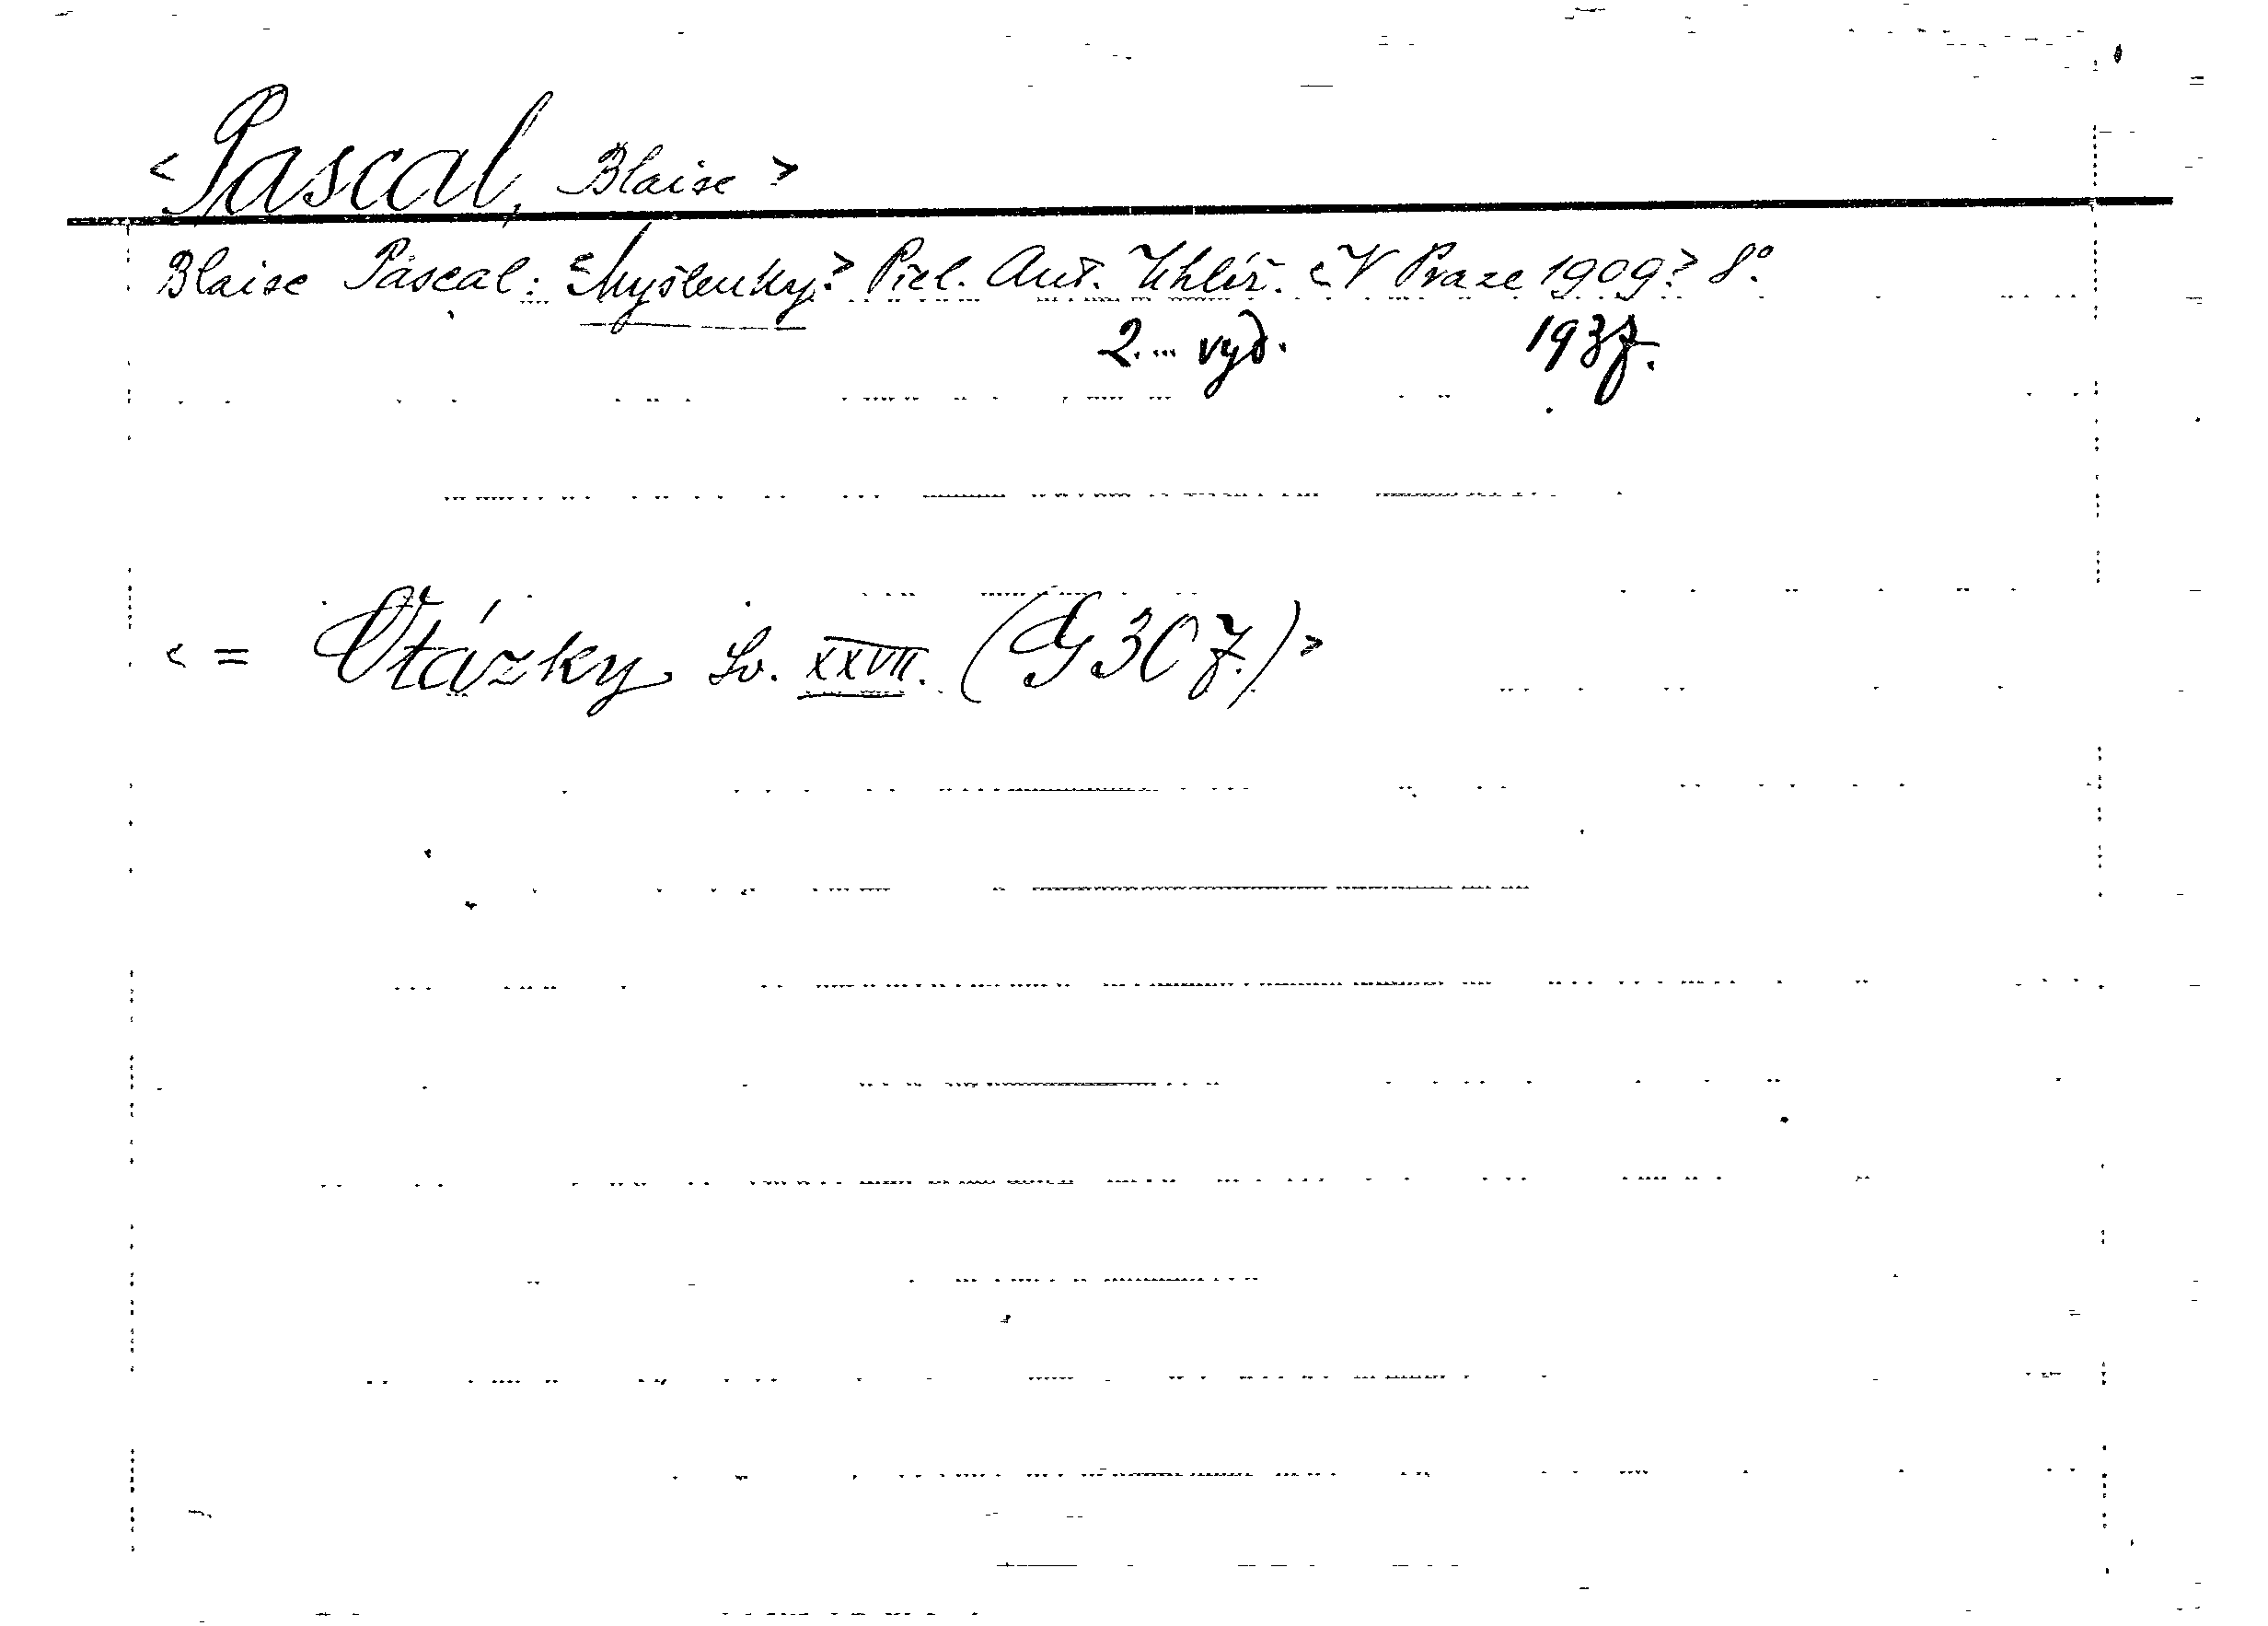 <Pascal, Blaise>
Blaise Pascal: <Myšlenky> Přel. Ant. Uhlíř. <V Praze 1909> 8°.
2. vyd. 1937.
<= Otázky Sv. XXVII. (G 3C7.)>